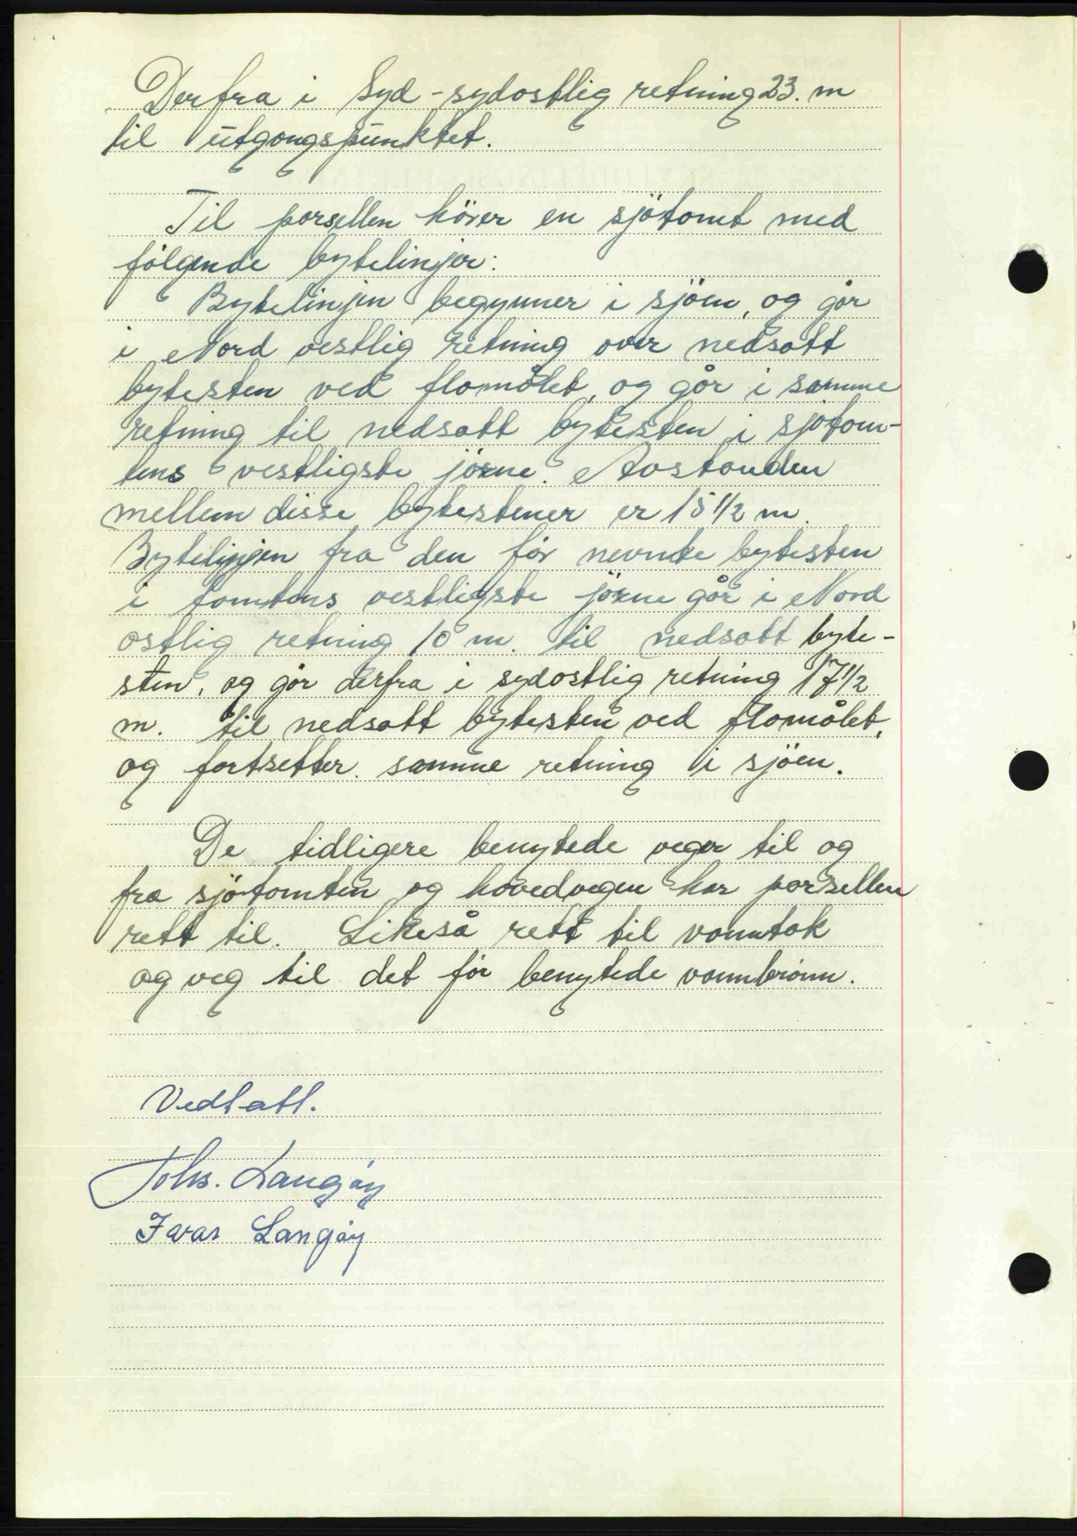 Derfra i Syd-sydostlig retning 23. m
til utgangspunktet.
Til parsellen hörer en sjötomt med
fölgende bytelinjer:
Bytelinjen begynner i sjöen, og går
i Nord vestlig retning over nedsatt
bytesten ved flomålet, og går i samme
retning til nedsatt bytesten i sjötom-
tens vestligste jörne. Avstanden
mellem disse bytestener er 15 1/2 m.
Bytelinjen fra den för nevnte bytesten
i tomtens vestligste jörne går i Nord
ostlig retning 10 m. til nedsatt byte-
sten, og går derfra i sydostlig retning 17 1/2
m. til nedsatt bytesten ved flomålet,
og fortsetter samme retning i sjöen.
De tidligere benytede veger til og
fra sjötomten og hovedvegen har parsellen
rett til. Likeså rett til vanntak
og veg til det för benytede vannbrönn.
Vedtatt.
Johs. Langöy
Ivar Langöy